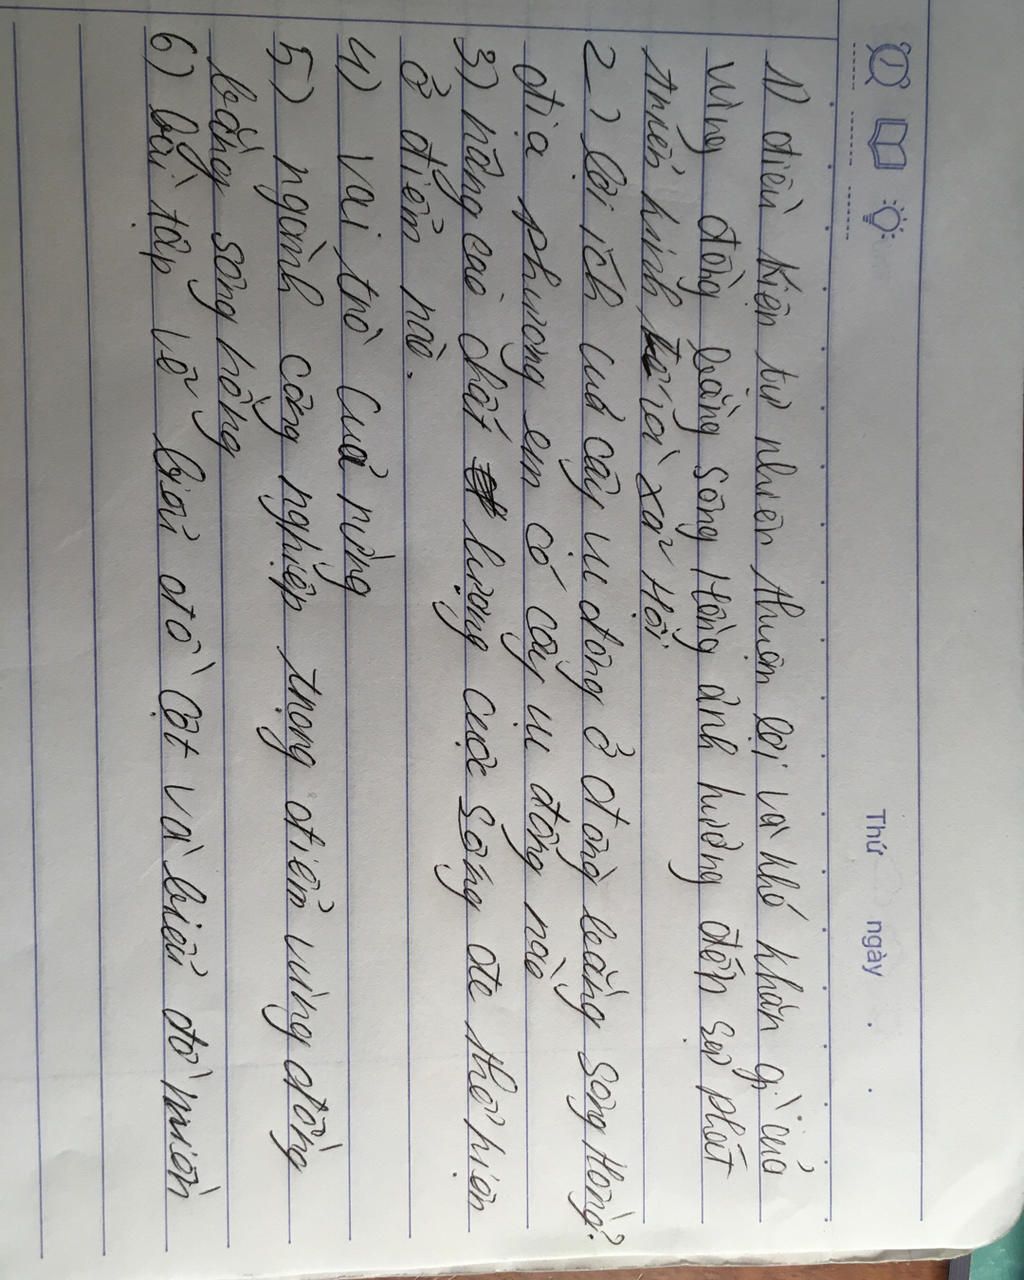 Thứ ngày
1) điều kiện tự nhiên thuận lợi và khó khăn gì của
vùng đồng bằng sông Hồng ảnh hưởng đến sự phát
triển kinh tế và xã Hội
2) lợi ích của cây vụ đông ở đồng bằng sông Hồng?
địa phương em có cây vụ đông nào
3) nâng cao chất lượng cuộc sống đc thể hiện
ở điểm nào.
4) vai trò của rừng
5) ngành công nghiệp trọng điểm vùng đồng
bằng sông hồng
6) bài tập vẽ biểu đồ cột và biểu đồ miền